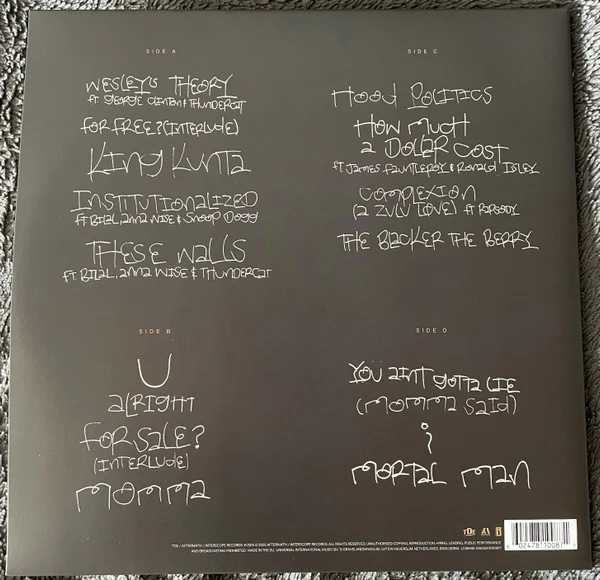 SIDE A
WESLEY'S THEORY
FT GEORGE CLINTON & THUNDERCAT
FOR FREE? (INTERLUDE)
KING KUNTA
INSTITUTIONALIZED
FT BILAL, ANNA WISE & SNOOP DOGG
THESE WALLS
FT BILAL, ANNA WISE & THUNDERCAT
SIDE B
U
ALRIGHT
FOR SALE?
(INTERLUDE)
MOMMA
SIDE C
HOOD POLITICS
HOW MUCH
A DOLLAR COST
FT JAMES FAUNTLEROY & RONALD ISLEY
COMPLEXION
(A ZULU LOVE) FT RAPSODY
THE BLACKER THE BERRY
SIDE D
YOU AINT GOTTA LIE
(MOMMA SAID)
i
MORTAL MAN
TDE